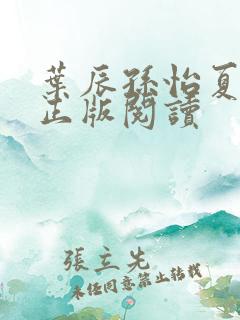 葉辰孫怡夏
正版閱讀
張立先
未經同意禁止轉載